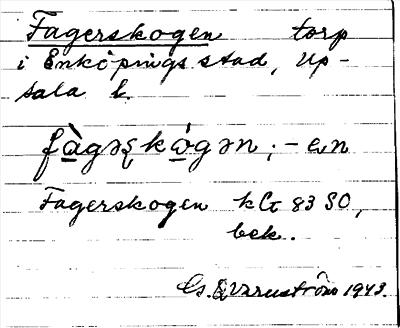 Fagerskogen torp
i Enköpings stad, Up-
sala l.
fàgəʂkógən; -en
Fagerskogen kG 83 SO,
bek.
1943.